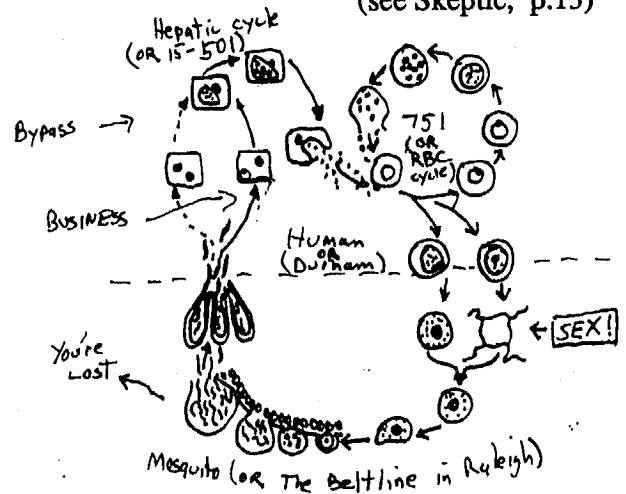 (see Skeptic, p.13)
Hepatic cycle
(OR 15-501)
Bypass
751
(OR
RBC
cycle)
BUSINESS
Human
(OR
Durham)
SEX!
You're
LOST
Mosquito (OR The Beltline in Raleigh)